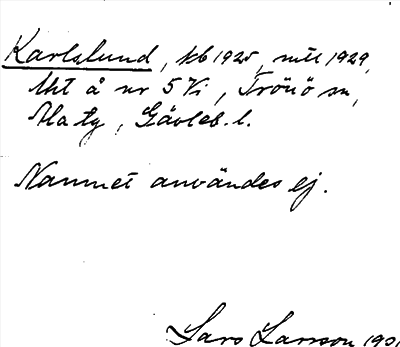 Karlslund, kb 1925, mtl 1929,
lht å nr 5 Vi, Trönö sn,
Ala tg, Gävleb. l.
Namnet användes ej.
Lars Larsson 190